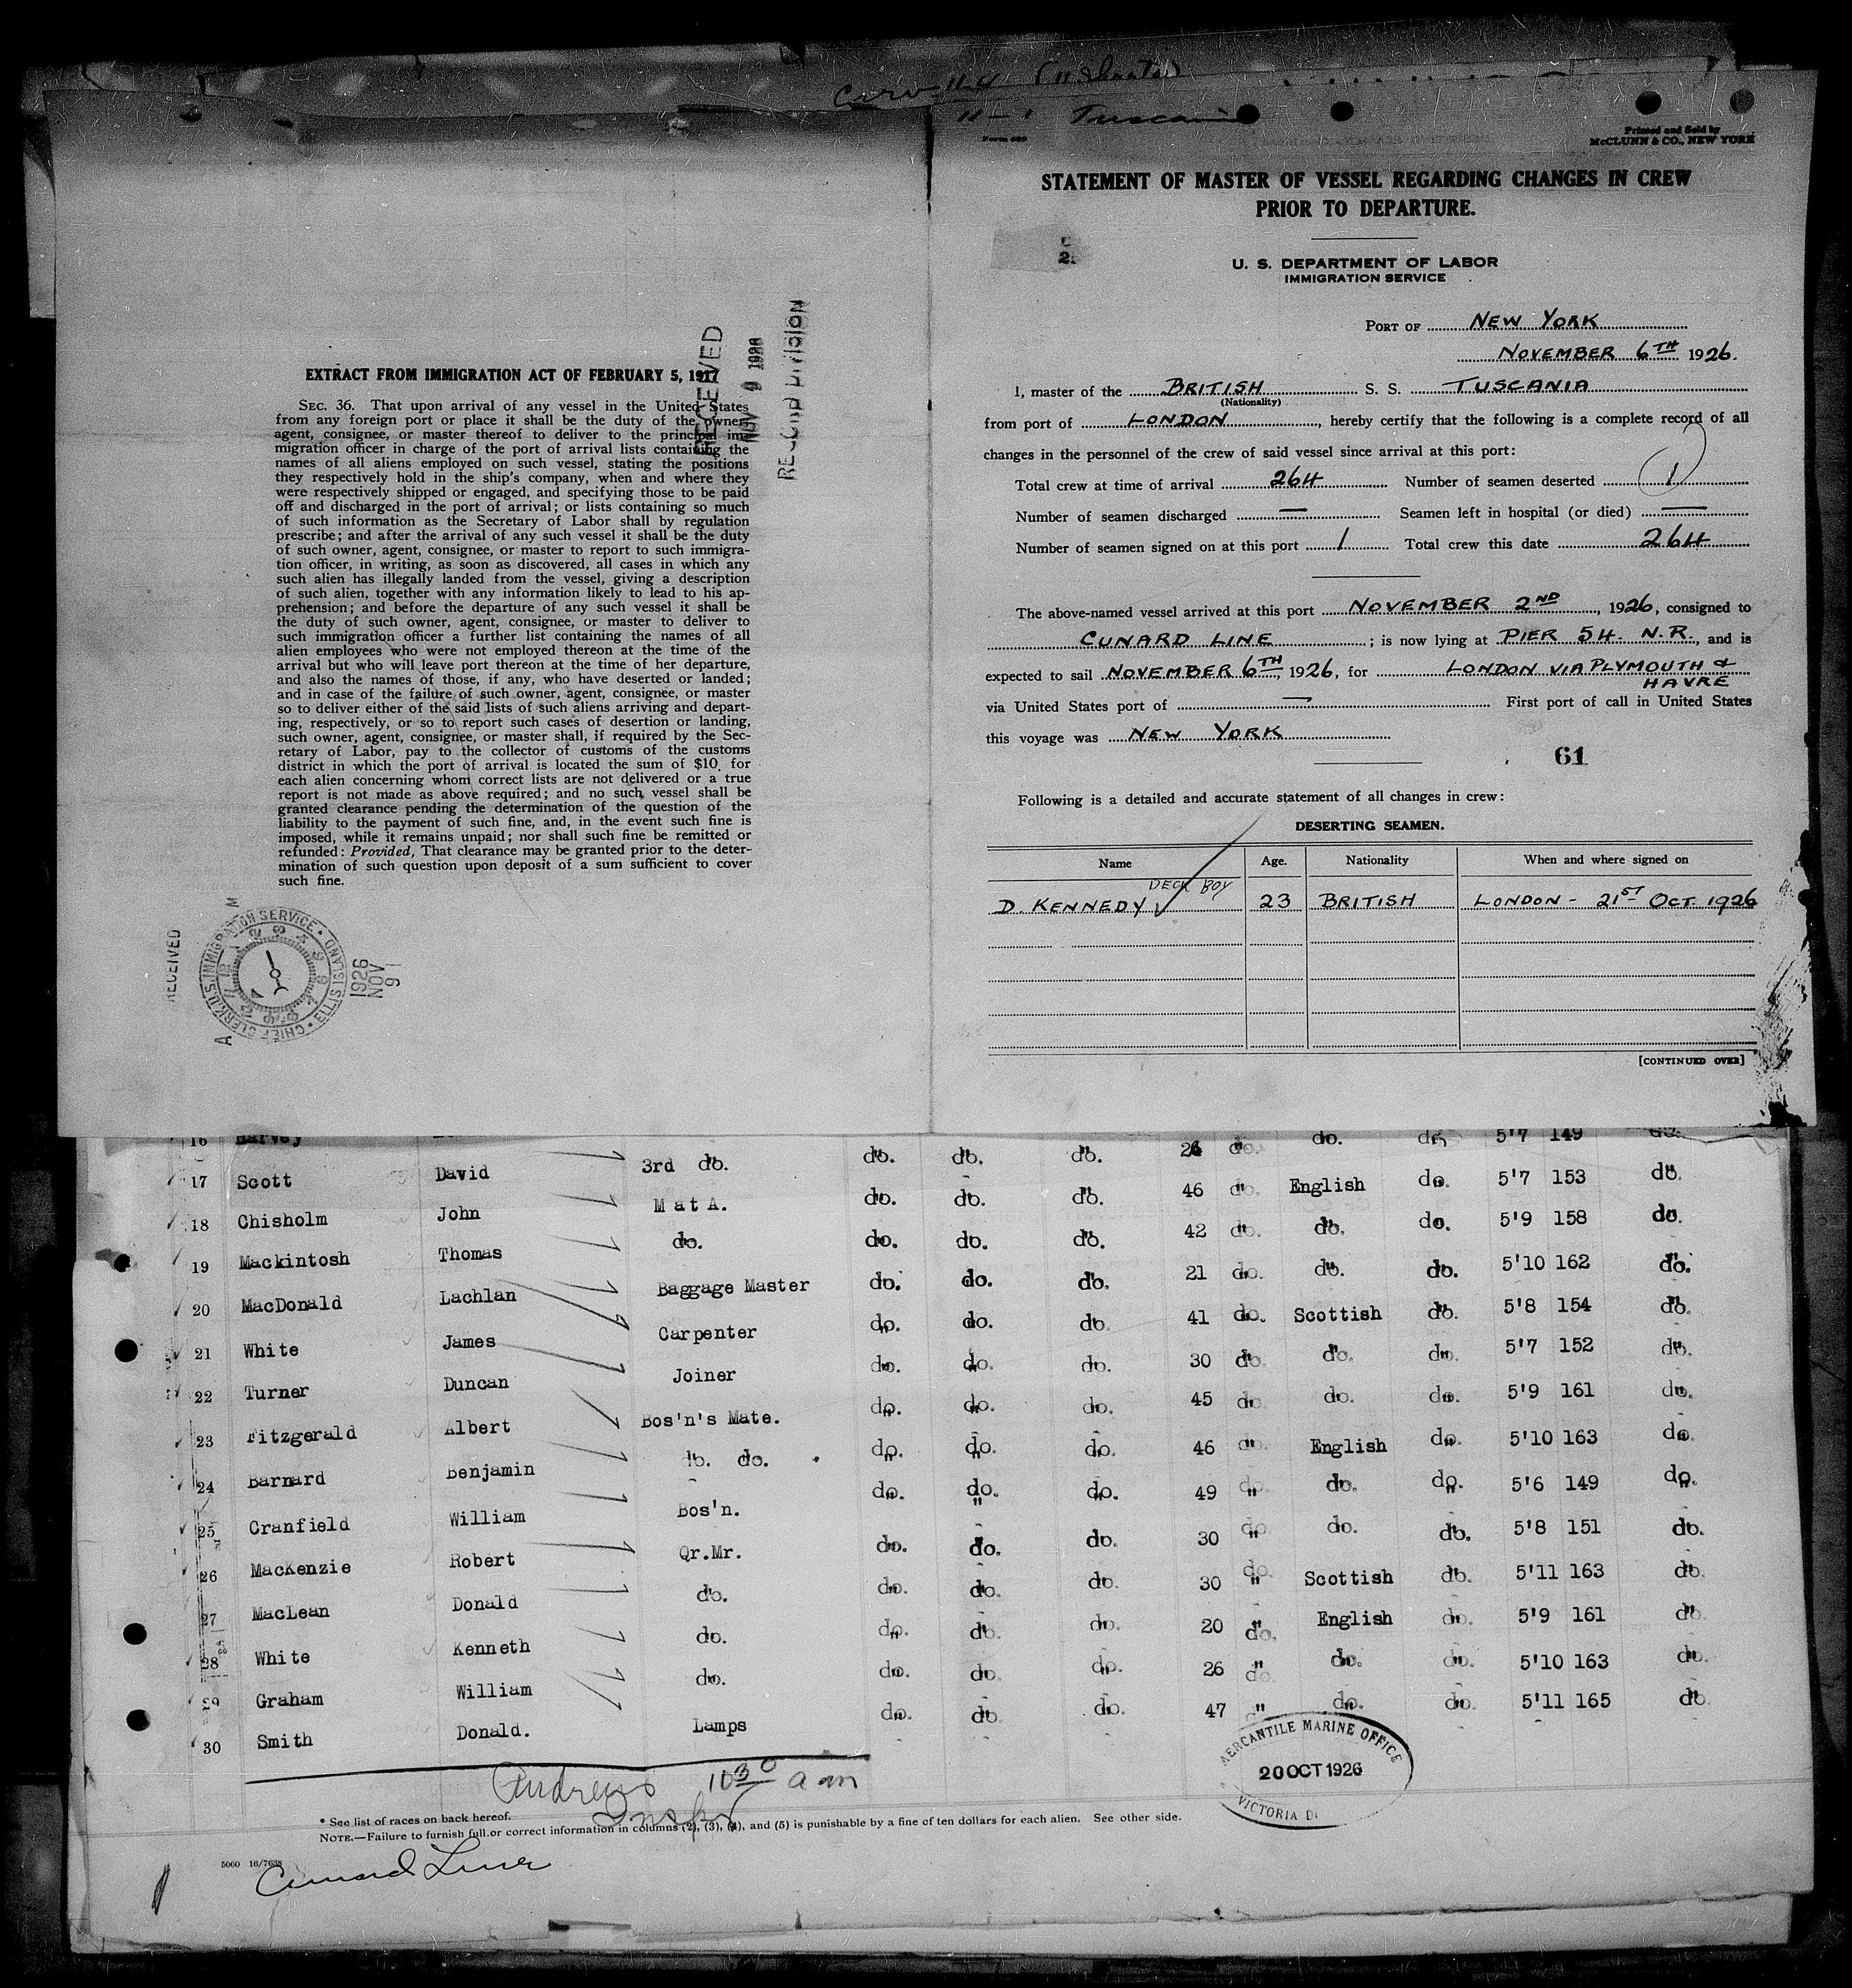 (11 sheets)
Tuscania
Form 689
Printed and Sold by
McCLUNN & CO., NEW YORK
STATEMENT OF MASTER OF VESSEL REGARDING CHANGES IN CREW
PRIOR TO DEPARTURE.
U. S. DEPARTMENT OF LABOR
IMMIGRATION SERVICE
PORT OF NEW YORK
NOVEMBER 6TH 1926.
I, master of the BRITISH S. S. TUSCANIA
(Nationality)
from port of LONDON, hereby certify that the following is a complete record of all
changes in the personnel of the crew of said vessel since arrival at this port:
Total crew at time of arrival 264 Number of seamen deserted 1
Number of seamen discharged — Seamen left in hospital (or died) —
Number of seamen signed on at this port 1 Total crew this date 264
The above-named vessel arrived at this port NOVEMBER 2ND, 1926, consigned to
CUNARD LINE; is now lying at PIER 54. N.R., and is
expected to sail NOVEMBER 6TH, 1926, for LONDON VIA PLYMOUTH &
HAVRE
via United States port of — First port of call in United States
this voyage was NEW YORK
61
Following is a detailed and accurate statement of all changes in crew:
DESERTING SEAMEN.
Name Age. Nationality When and where signed on
DECK BOY
D. KENNEDY 23 BRITISH LONDON - 21ST OCT. 1926
[CONTINUED OVER]
EXTRACT FROM IMMIGRATION ACT OF FEBRUARY 5, 1917
SEC. 36. That upon arrival of any vessel in the United States
from any foreign port or place it shall be the duty of the owner,
agent, consignee, or master thereof to deliver to the principal im-
migration officer in charge of the port of arrival lists containing the
names of all aliens employed on such vessel, stating the positions
they respectively hold in the ship's company, when and where they
were respectively shipped or engaged, and specifying those to be paid
off and discharged in the port of arrival; or lists containing so much
of such information as the Secretary of Labor shall by regulation
prescribe; and after the arrival of any such vessel it shall be the duty
of such owner, agent, consignee, or master to report to such immigra-
tion officer, in writing, as soon as discovered, all cases in which any
such alien has illegally landed from the vessel, giving a description
of such alien, together with any information likely to lead to his ap-
prehension; and before the departure of any such vessel it shall be
the duty of such owner, agent, consignee, or master to deliver to
such immigration officer a further list containing the names of all
alien employees who were not employed thereon at the time of the
arrival but who will leave port thereon at the time of her departure,
and also the names of those, if any, who have deserted or landed;
and in case of the failure of such owner, agent, consignee, or master
so to deliver either of the said lists of such aliens arriving and depart-
ing, respectively, or so to report such cases of desertion or landing,
such owner, agent, consignee, or master shall, if required by the Sec-
retary of Labor, pay to the collector of customs of the customs
district in which the port of arrival is located the sum of $10 for
each alien concerning whom correct lists are not delivered or a true
report is not made as above required; and no such vessel shall be
granted clearance pending the determination of the question of the
liability to the payment of such fine, and, in the event such fine is
imposed, while it remains unpaid; nor shall such fine be remitted or
refunded: Provided, That clearance may be granted prior to the deter-
mination of such question upon deposit of a sum sufficient to cover
such fine.
RECEIVED
NOV 9 1926
RECORD DIVISION
RECEIVED
CHIEF CLERK U.S. IMMIGRATION SERVICE · ELLIS ISLAND
1926
NOV
9
16 Harvey do. do. 5'7 149 do.
17 Scott David 3rd do. do. do. do. 26 do. English do. 5'7 153 do.
18 Chisholm John M at A. do. do. do. 46 " do. do. 5'9 158 do.
19 Mackintosh Thomas do. do. do. do. 42 " do. do. 5'10 162 do.
20 MacDonald Lachlan Baggage Master do. do. do. 21 do. Scottish do. 5'8 154 do.
21 White James Carpenter do. do. do. 41 do. do. do. 5'7 152 do.
22 Turner Duncan Joiner do. do. do. 30 do. do. do. 5'9 161 do.
23 Fitzgerald Albert Bos'n's Mate. do. do. do. 45 do. English do. 5'10 163 do.
24 Barnard Benjamin do. do. do. do. do. 46 do. do. do. 5'6 149 do.
25 Cranfield William Bos'n. do. do. do. 49 " do. do. 5'8 151 do.
26 MacKenzie Robert Qr.Mr. do. do. do. 30 " Scottish do. 5'11 163 do.
27 MacLean Donald do. do. do. do. 30 " English do. 5'9 161 do.
28 White Kenneth do. do. do. do. 20 " do. do. 5'10 163 do.
29 Graham William do. do. do. do. 26 " do. do. 5'11 165 do.
30 Smith Donald. Lamps do. do. do. 47 "
Andrews 10 30 am
Inspr
MERCANTILE MARINE OFFICE
20 OCT 1926
VICTORIA
* See list of races on back hereof.
NOTE.—Failure to furnish full or correct information in columns (2), (3), (4), and (5) is punishable by a fine of ten dollars for each alien. See other side.
Cunard Line